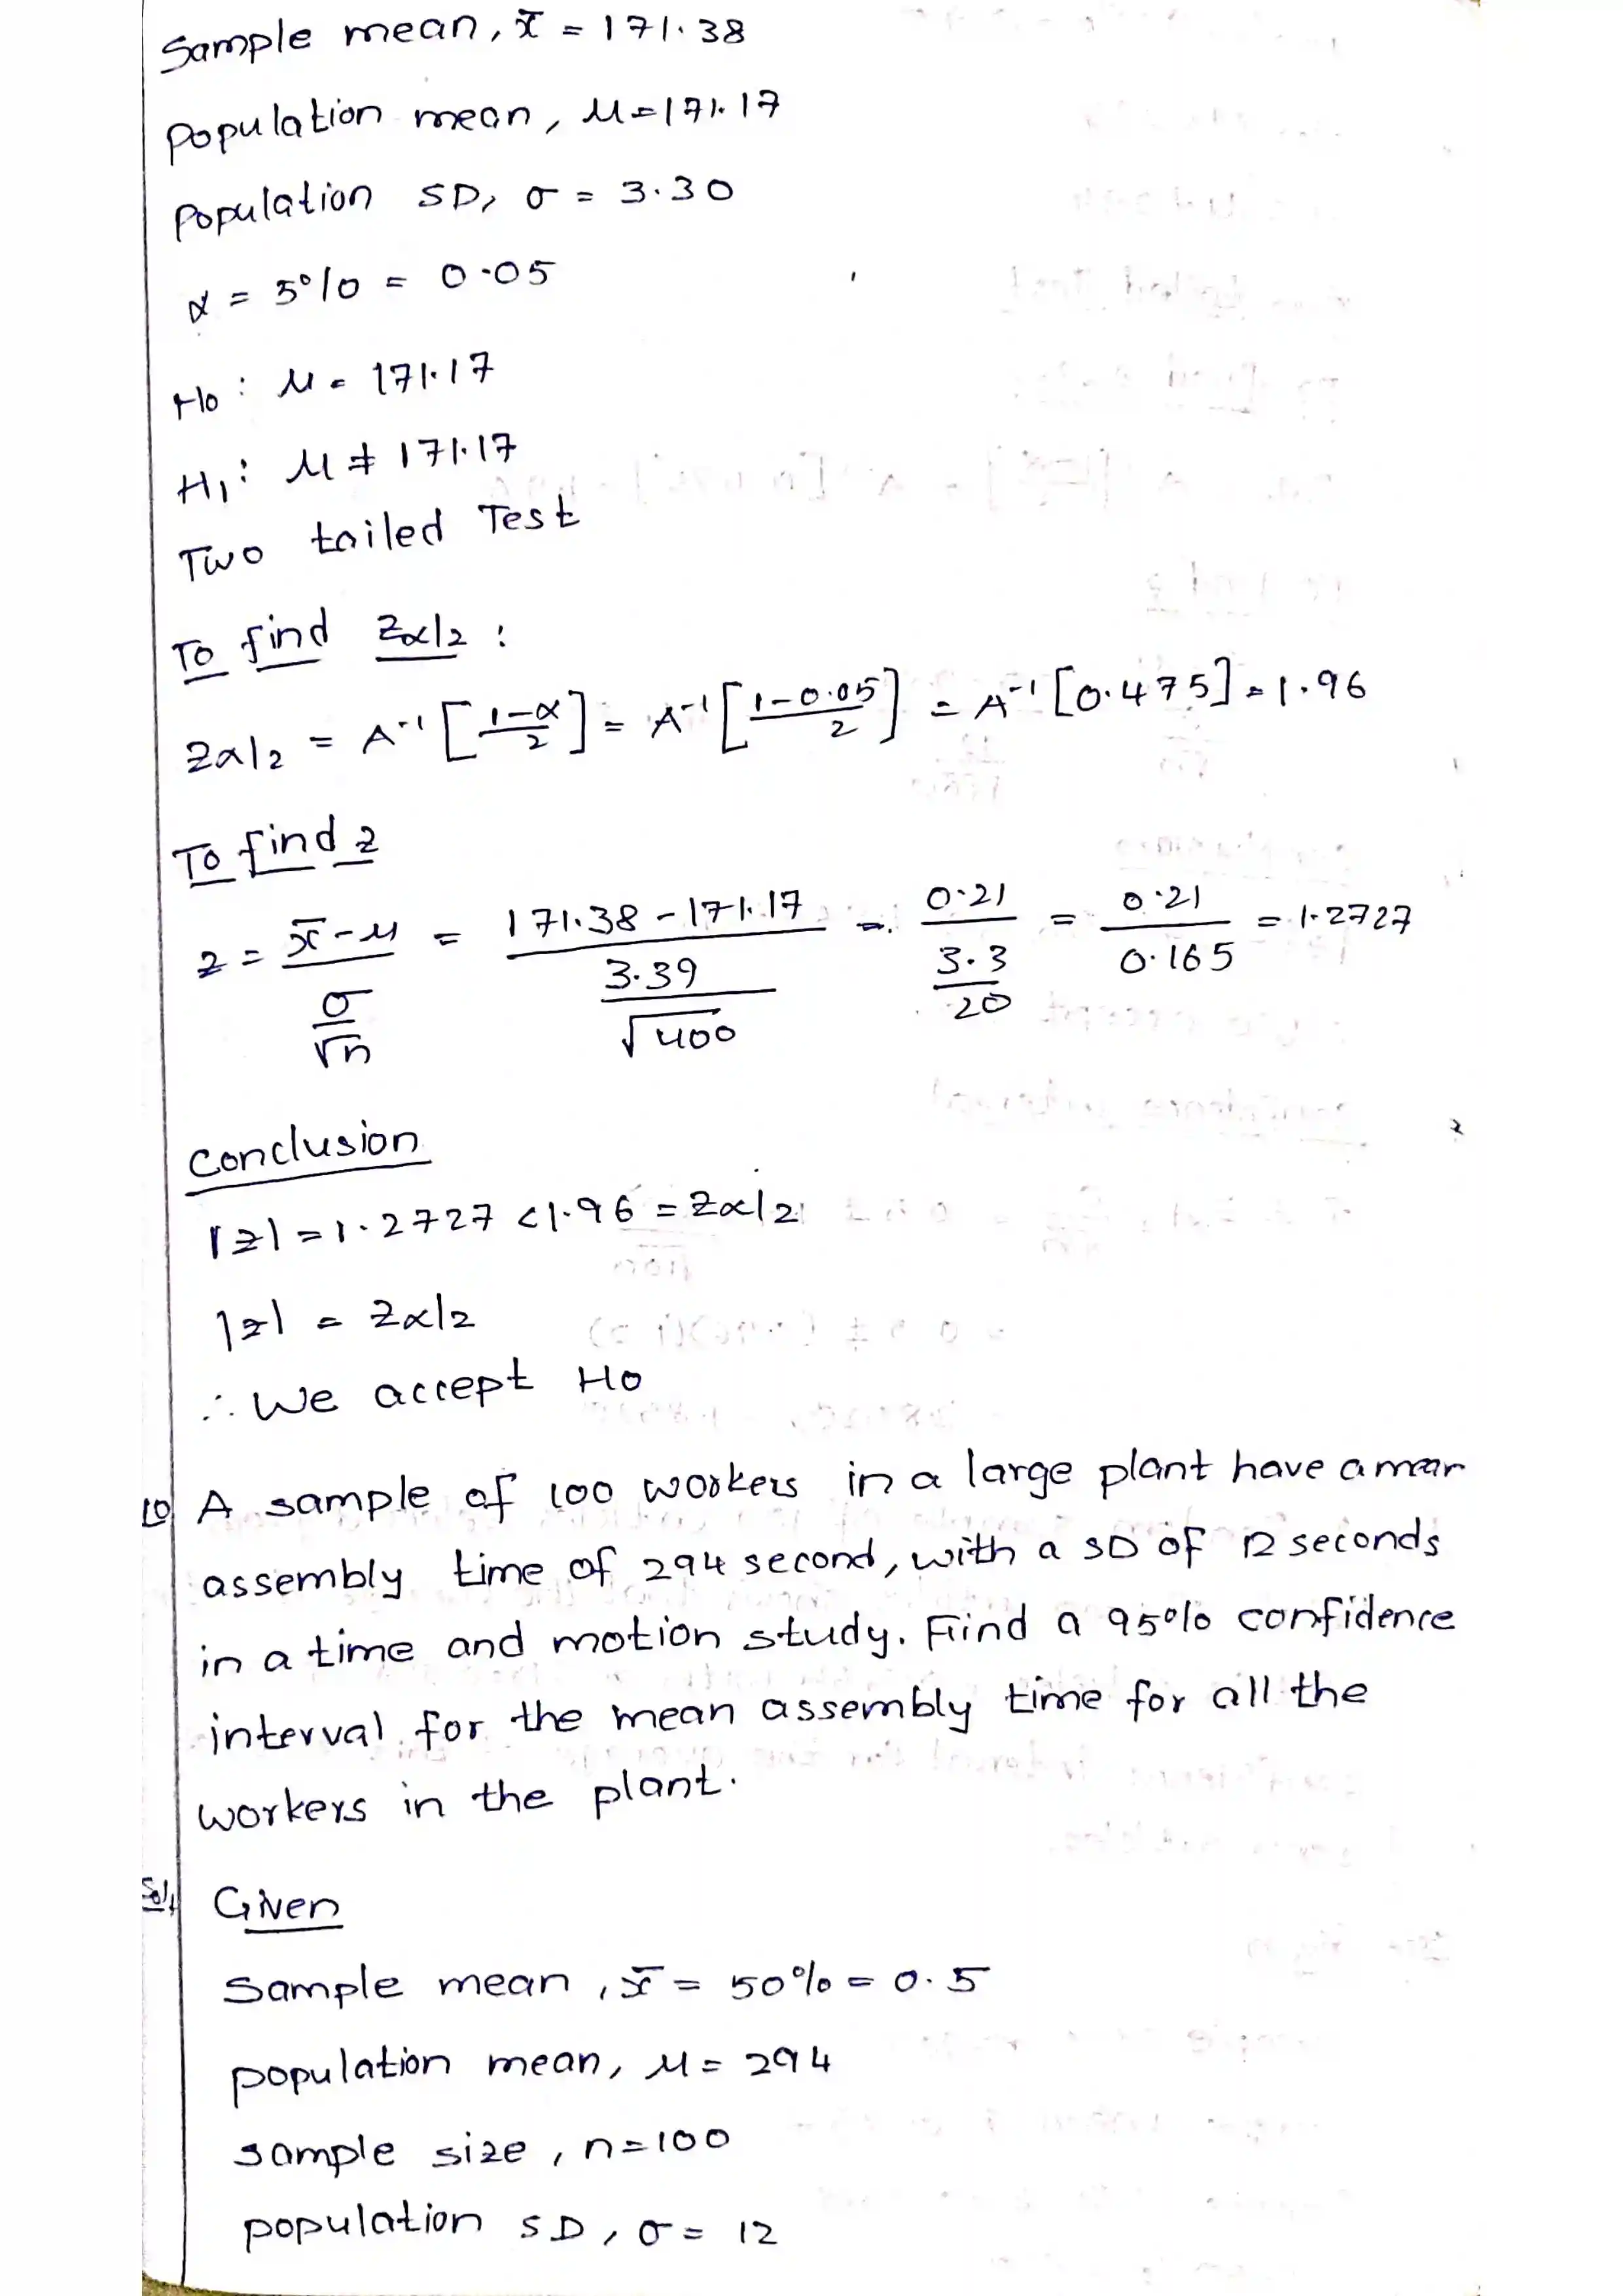 Sample mean, x̄ = 171.38
Population mean, μ = 171.17
Population SD, σ = 3.30
α = 5% = 0.05
H₀ : μ = 171.17
H₁ : μ ≠ 171.17
Two tailed Test
To find Zα/2 :
Zα/2 = A⁻¹ [(1-α)/2] = A⁻¹ [(1-0.05)/2] = A⁻¹ [0.475] = 1.96
To find z
z = (x̄-μ)/(σ/√n) = (171.38-171.17)/(3.39/√400) = 0.21/(3.3/20) = 0.21/0.165 = 1.2727
Conclusion
|z| = 1.2727 < 1.96 = Zα/2
|z| = Zα/2
∴ We accept H₀
10) A sample of 100 workers in a large plant have a mean
assembly time of 294 second, with a SD of 12 seconds
in a time and motion study. Find a 95% confidence
interval for the mean assembly time for all the
workers in the plant.
Sol, Given
Sample mean, x̄ = 50% = 0.5
population mean, μ = 294
sample size, n = 100
population SD, σ = 12